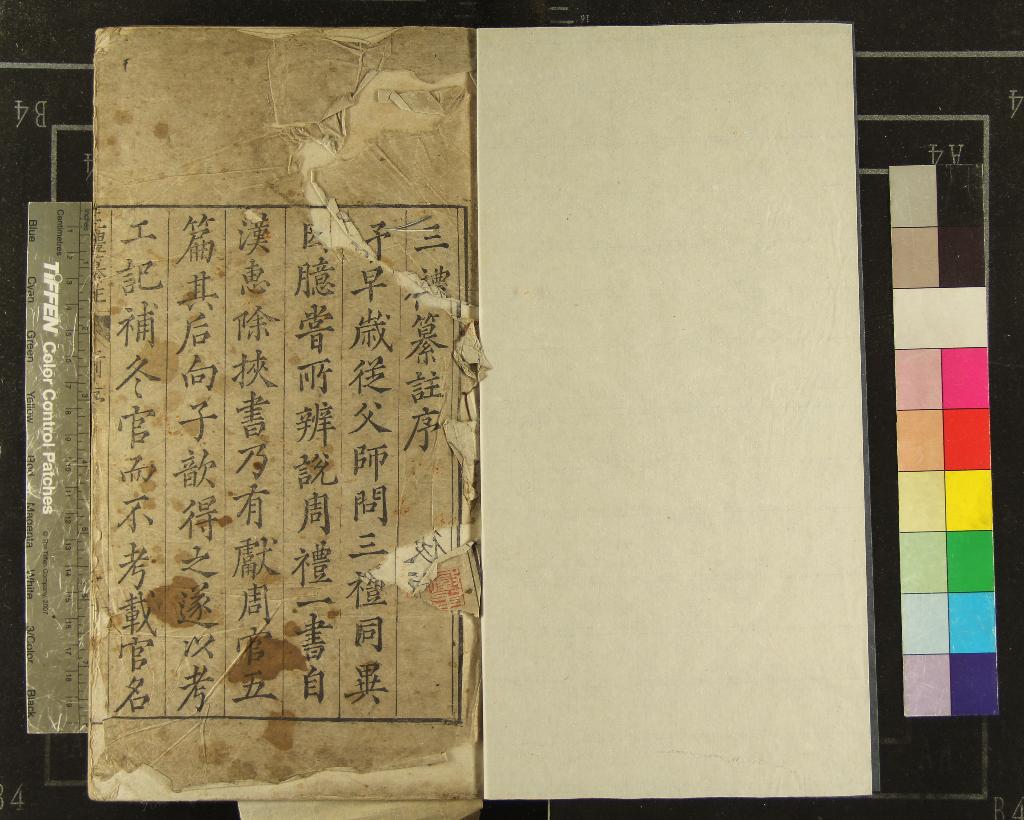 三禮纂註序
予早歲從父師問三禮同異
臆嘗所辨説周禮一書自
漢惠除挾書乃有獻周官五
篇其后向子歆得之遂以考
工記補冬官而不考載官名
TIFFEN Color Control Patches
© The Tiffen Company, 2007
Centimetres
Blue
Cyan
Green
Yellow
Red
Magenta
White
3/Color
Black
B4
A4
4
B4
B4